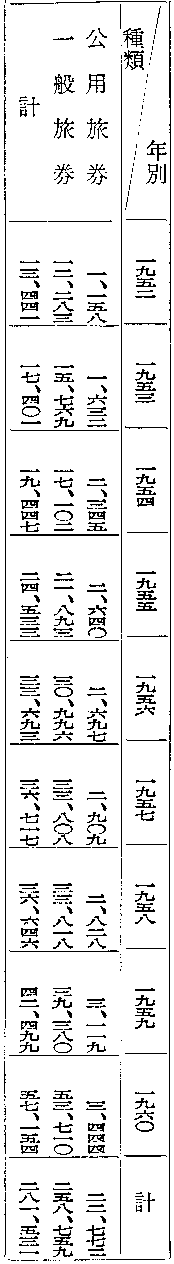 種類 年別 一九五二 一九五三 一九五四 一九五五 一九五六 一九五七 一九五八 一九五九 一九六〇 計
公用旅券 一、一五八 一、六三二 二、三四五 二、六四〇 二、六九七 二、九〇九 二、八二八 三、一一九 三、四四四 二二、七七二
一般旅券 一二、二八三 一五、七六九 一七、一〇二 二一、八九三 三〇、九九六 三三、八〇八 三三、八一八 三九、三八〇 五三、七一〇 二五八、七五九
計 一三、四四一 一七、四〇一 一九、四四七 二四、五三三 三三、六九三 三六、七一七 三六、六四六 四二、四九九 五七、一五四 二八一、五三一